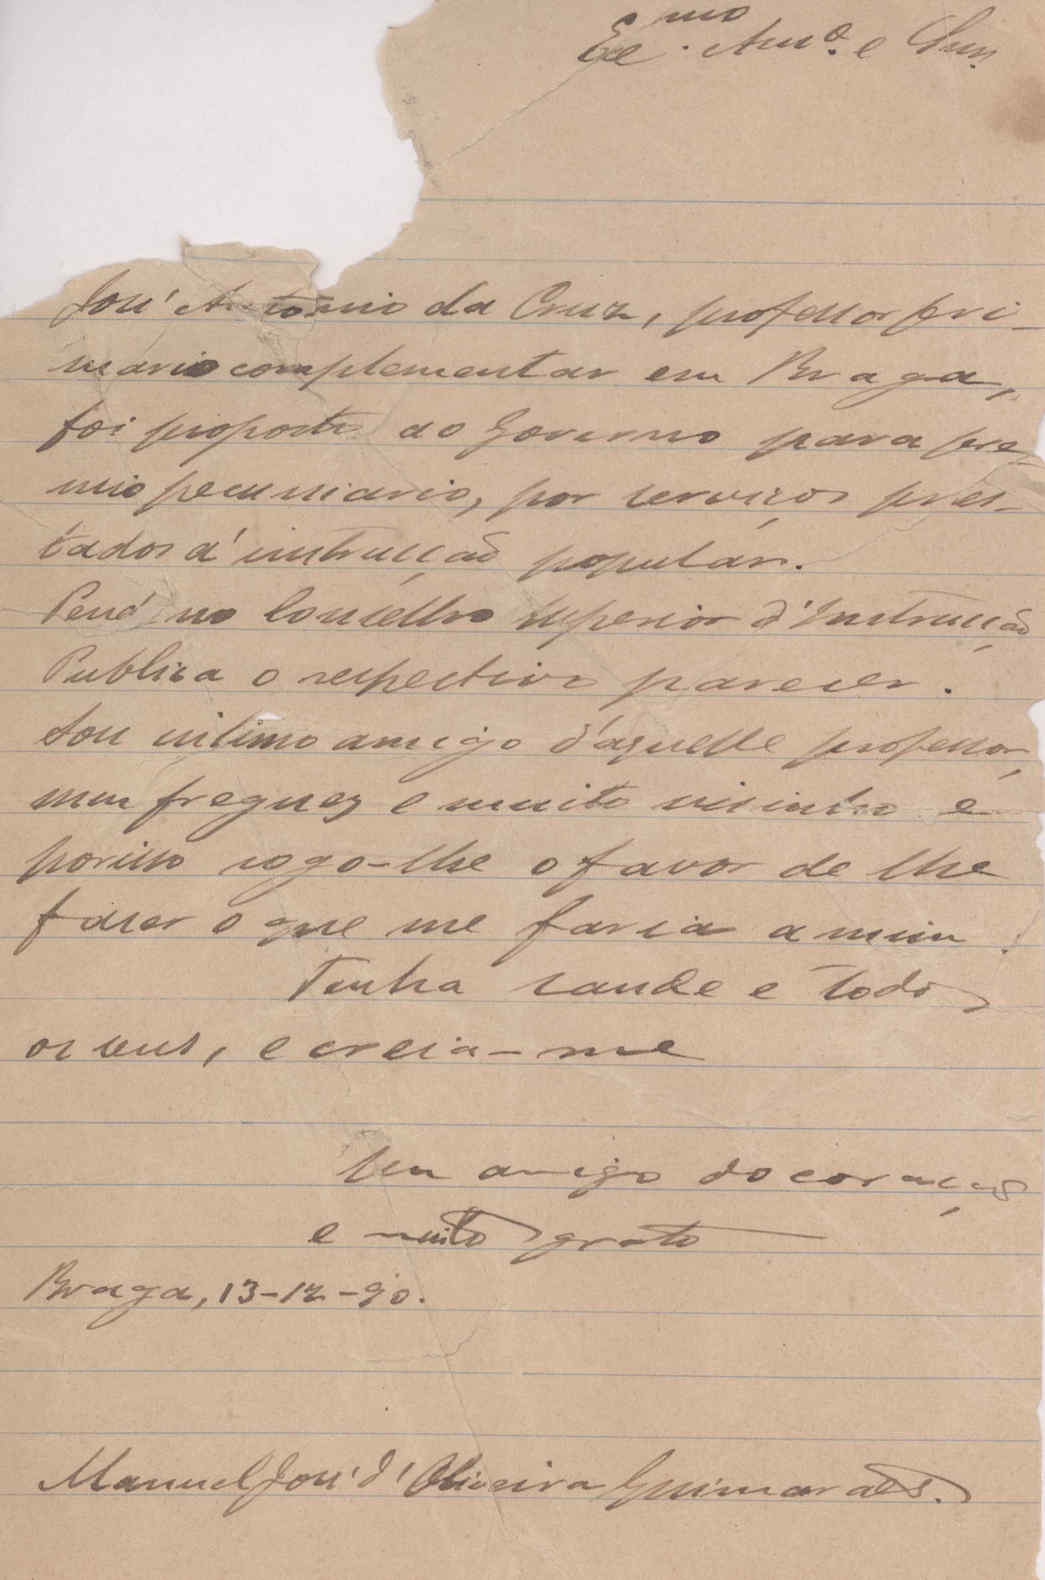 Ex.mo Am.o e Snr.
José Antonio da Cruz, professor pri-
mario complementar em Braga,
foi proposto ao Governo para pre-
mio pecuniario, por serviços pres-
tados á instrucção popular.
Pende no Conselho Superior d'Instrucção
Publica o respectivo parecer.
Sou intimo amigo d'aquelle professor,
meu freguez e muito visinho e
por isso rogo-lhe o favor de lhe
fazer o que me faria a mim.
Tenha saude e todos
os seus, e creia-me
Seu amigo do coração
e muito grato
Braga, 13-12-90.
Manuel José d'Oliveira Guimarães.